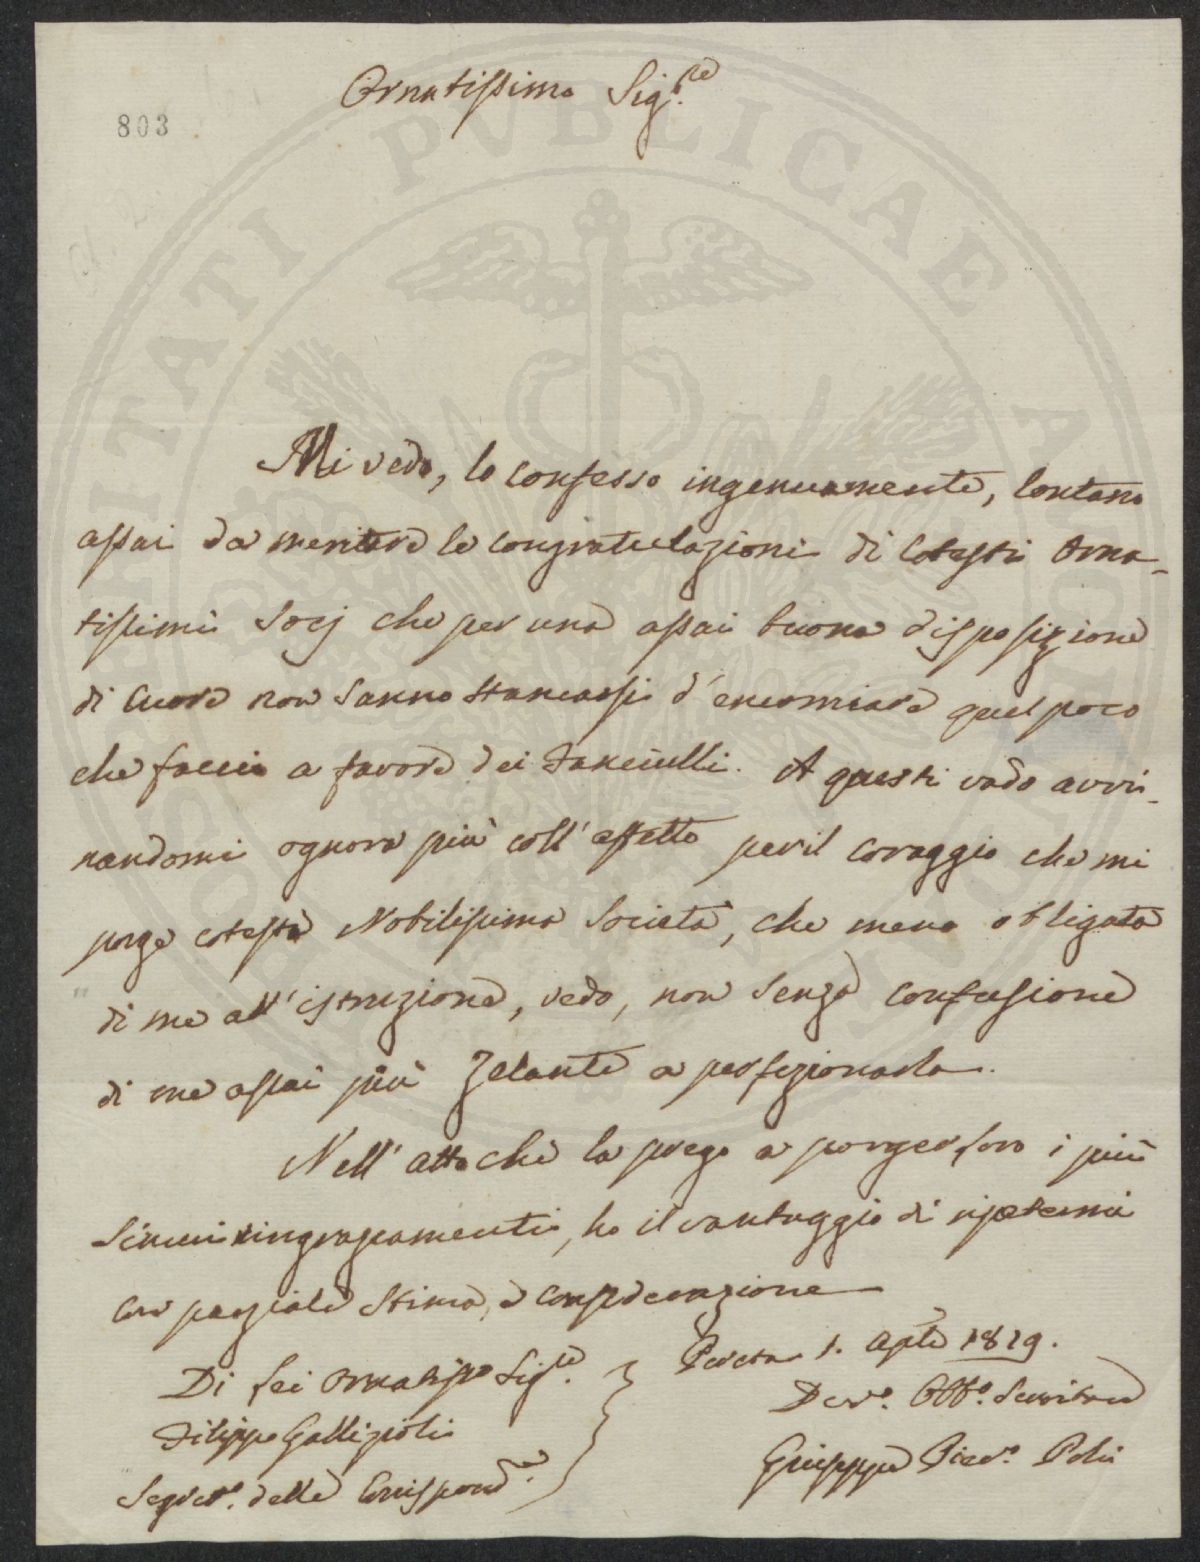 Ornatissimo Sig.re
803
Mi vedo, lo confesso ingenuamente, lontano
assai da meritare le congratulazioni di cotesti Orna-
tissimi Socj che per una assai buona disposizione
di cuore non sanno stancarsi d'encomiare quel poco
che faccio a favore dei Fanciulli. A questi vado avvi-
nandomi ognora più coll'affetto per il coraggio che mi
porge cotesta Nobilissima Società, che meno obligata
di me all'istruzione, vedo, non senza confusione
di me assai più zelante a perfezionarla.
Nell'atto che la prego a porger loro i più
sinceri ringraziamenti, ho il vantaggio di ripetermi
con parziale stima, e considerazione
Di Lei Ornatissmo Sig.re
Filippo Gallizioli
Segret.o delle Corrispond.e
1. Agto 1819.
Dev.o Obb.o Servitore
Giuseppe Piev.o Poli
PVBLICAE